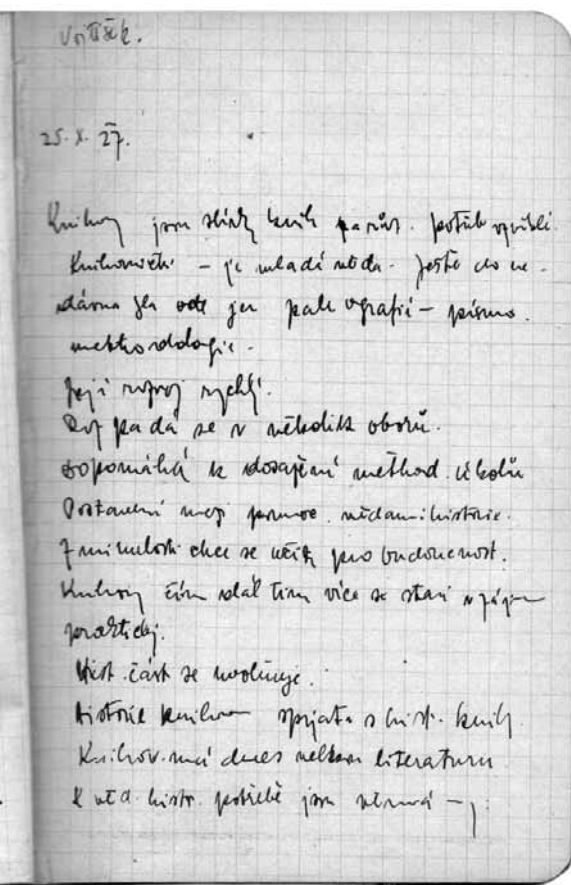 Vojtíšek.
25. X. 27.
Knihovny jsou sbírky knih potřeb
Knihovnictví – je mladá věda. Ještě do ne-
dávna šla jen paleografií – písmo.
methodologie.
Její rozvoj rychlý.
Rozpadá se v několik oborů.
Dopomáhá k dosažení method. úkolů
Postavení mezi pomoc. vědami historie.
Z minulosti chce se učiti pro budoucnost.
Knihovny čím dál tím více se staví
praktický.
Hist. část se uvolňuje.
Historie knihoven spjata s hist. knihy
Knihov. má dnes velkou literaturu
K věd. histor. potřebě jsou